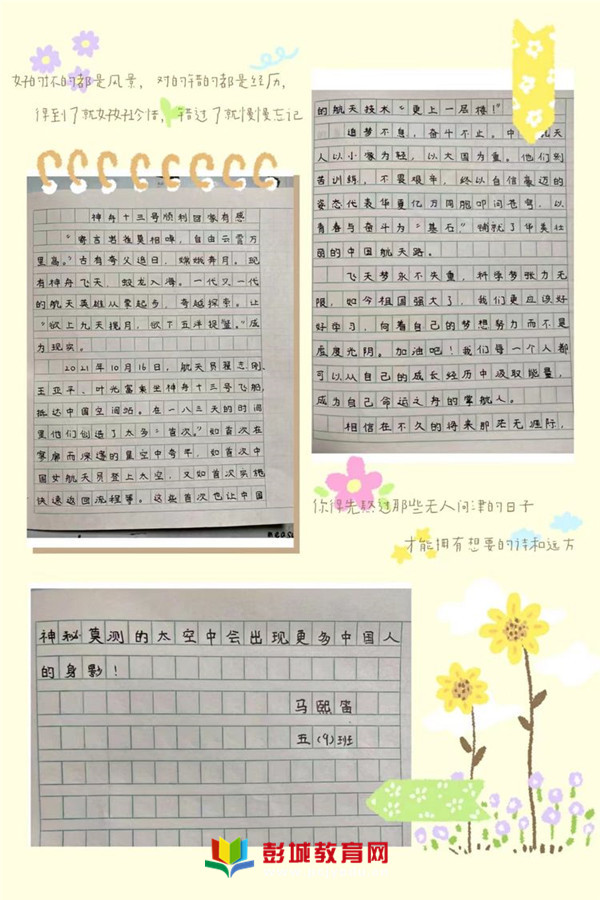 好的坏的都是风景，对的错的都是经历，
得到了就好好珍惜，错过了就慢慢忘记
神舟十三号顺利回家有感
“寄言男雀莫相啅，自由云霄万
里高。”古有夸父追日，嫦娥奔月。现
有神舟飞天，蛟龙入海。一代又一代
的航天英雄从零起步，奇越探索。让
“欲上九天揽月，欲下五洋捉鳖。”成
为现实。
2021年10月16日，航天员翟志刚、
王亚平、叶光富乘坐神舟十三号飞船
抵达中国空间站。在一八三天的时间
里他们创造了太多“首次。”如首次在
寥廓而深邃的星空中夸年，如首次中
国女航天员登上太空，又如首次实施
快速返回流程等。这些首次也让中国
的航天技术“更上一层楼！”
追梦不息，奋斗不止。中国航天
人以小家为轻，以大国为重。他们刻
苦训练，不畏艰辛，终以自信豪迈的
姿态代表华夏亿万同胞叩问苍穹，以
青春与奋斗为“基石”铺就了华美壮
丽的中国航天路。
飞天梦永不失重，科学梦张力无
限，如今祖国强大了，我们更应该好
好学习，向着自己的梦想努力而不是
虚度光阴。加油吧！我们每一个人都
可以从自己的成长经历中汲取能量，
成为自己命运之舟的掌舵人。
相信在不久的将来那茫无涯际，
你得先熬过那些无人问津的日子
才能拥有想要的诗和远方
神秘莫测的太空中会出现更多中国人
的身影！
马熙笛
五（9）班
彭城教育网